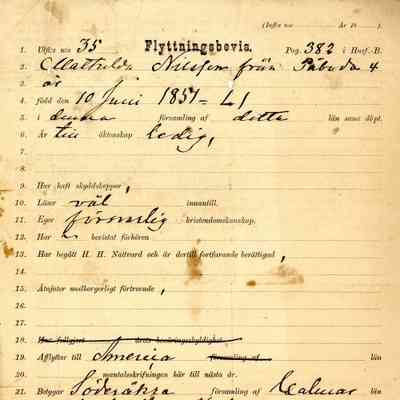 (Infördt nio År 18 ).
1. Utförc nio 35 Flyttningsbevis. Pag. 382 i Husf.-B.
2. Mathilda Nilsson från Påboda 4
3. är
4. född den 10 Juni 1851
5. i denna församling af detta län samt döpt.
6. Är till äktenskap ledig,
7.
8.
9. Har haft skyddskoppor,
10. Läser väl innantill.
11. Eger försvarlig kristendomskunskap.
12. Har bevistat förhören
13. Har begått H. H. Nattvard och är dertill fortfarande berättigad,
14.
15. Åtnjuter medborgerligt förtroende,
16.
17.
18. Har fullgjort årets beväringsskyldighet
19. Afflyttar till America församling af län
20. mantalsskrifningen här till nästa år.
21. Betygar Söderåkra församling af Calmar län